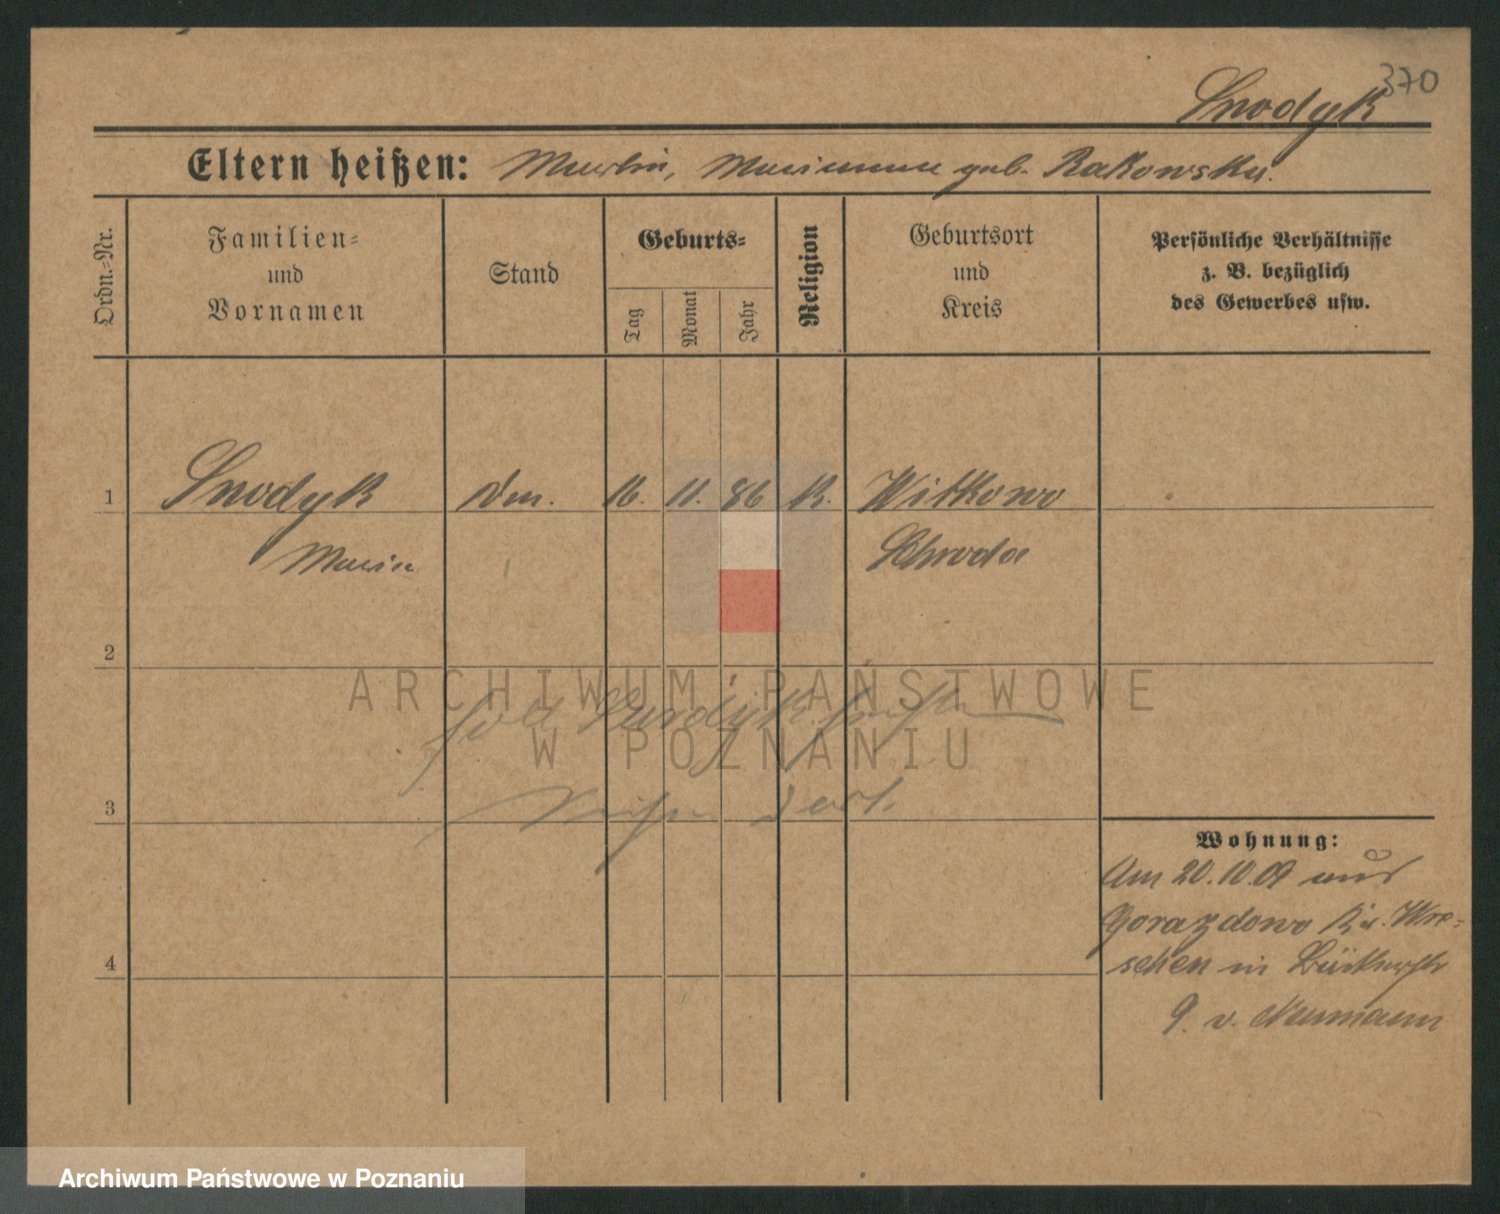 370
Snodyk
Eltern heißen: Martin, Marianna geb. Rakowska.
Ordn.-Nr.
Familien- und Vornamen
Stand
Geburts-
Tag
Monat
Jahr
Religion
Geburtsort und Kreis
Persönliche Verhältnisse z. B. bezüglich des Gewerbes usw.
1 Snodyk 16. 11. 86 K. Witkowo
Maria Schroda
2
soll
3
Wohnung:
Am 20.10.09 aus
Gorazdowo Kr. Wre-
schen in
9. v. Neumann
4
ARCHIWUM PAŃSTWOWE
W POZNANIU
Archiwum Państwowe w Poznaniu